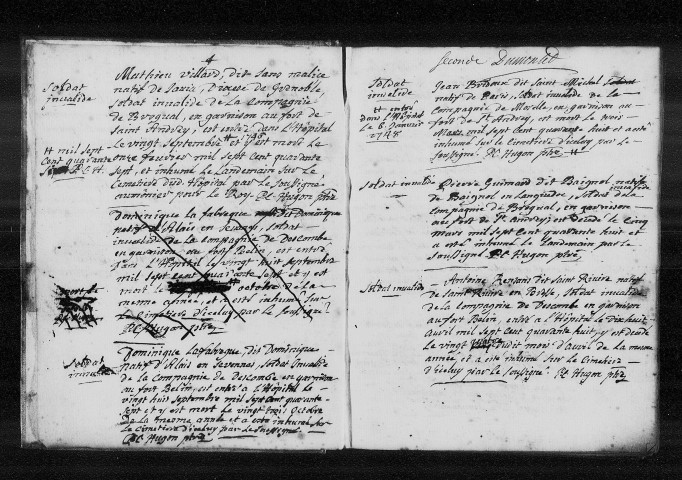 4
Soldat
invalide
Mathieu villard, dit sans malice
natif de Paris, diocese de Grenoble,
soldat invalide de la Compagnie
de Broqual, en garnison au fort de
Saint André, est entré dans L'hôpital
le vingt Septembre # 1748 et y est mort le
onze fevrier mil sept Cent quarante
sept, et inhumé le Landemain sur le
Cemetiere dud. Hopital par le soussigné
aumônier pour le Roy. P.C. Hugon ptre
# mil sept
Cent quarante
P.C.H.
Dominique la fabrique dit Dominique
natif d'Alais en Sevenes, soldat
invalide de la compagnie de Descombe
en garnison au fort Belin, est entré
dans L'hôpital le vingt huit septembre
mil sept cent quarante sept et y est
mort le octobre de la
mesme année, et a esté inhumé sur
le Cimetiere d'iceluy par le soussigné
P.C. Hugon ptre
Soldat
invalide
Dominique Lafabrique, dit Dominique
natif d'Alais en Sevennes, soldat Invalide
de la Compagnie de Descombe en garnison
au fort Belin, est entré à L'hôpital le
vingt huit septembre mil sept cent quarante
sept et y est mort le vingt trois Octobre
de la mesme année et a esté inhumé sur
le cimetiere d'iceluy par le soussigné
P.C. Hugon ptre
Seconde
Soldat
invalide
# entré
dans L'hôpital
le 6 Janvier
1748
Jean dit Saint Michel
natif de Paris, soldat invalide de la
Compagnie de Morelle, en garnison au
fort de St. André, est mort le trois
Mars mil sept cent quarante huit et a esté
inhumé sur le Cimetiere d'iceluy par le
Soussigné. P.C. Hugon ptre #
Soldat invalide
Pierre Guimard dit Baignol natif
de Baignol en Langedoc, soldat invalide de la
Compagnie de Broqual, en garnison
au fort de St. André, est decedé le cinq
mars mil sept cent quarante huit et
a esté inhumé le landemain par le
soussigné P.C. Hugon ptre
Soldat invalide
Antoine dit Saint Riviere natif
de Saint Riviere en, soldat invalide
de la compagnie de Descombe en garnison
au fort Belin, entré à L'hôpital le dix huit
avril mil sept cent quarante huit, y est decedé
le vingt quatre dudit mois d'avril de la mesme
année, et a esté inhumé sur le Cimetiere
d'iceluy par le soussigné. P.C. Hugon ptre